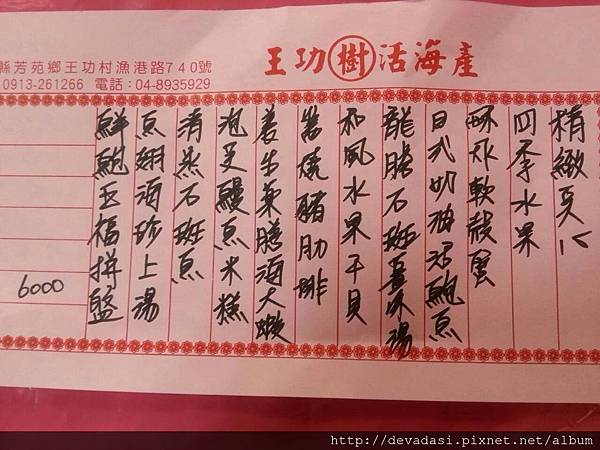 王功樹活海產
縣芳苑鄉王功村漁港路740號
0913-261266 電話：04-8935929
6000
鮮鮑五福拼盤
魚翅海珍上湯
清蒸石斑魚
鰻魚米糕
養生藥膳海大蝦
岩燒豬肋排
和風水果干貝
龍膽石斑薑絲湯
日式奶油焗鮑魚
酥炸軟殼蟹
四季水果
精緻奌心
http://devadasi.pixnet.net/album